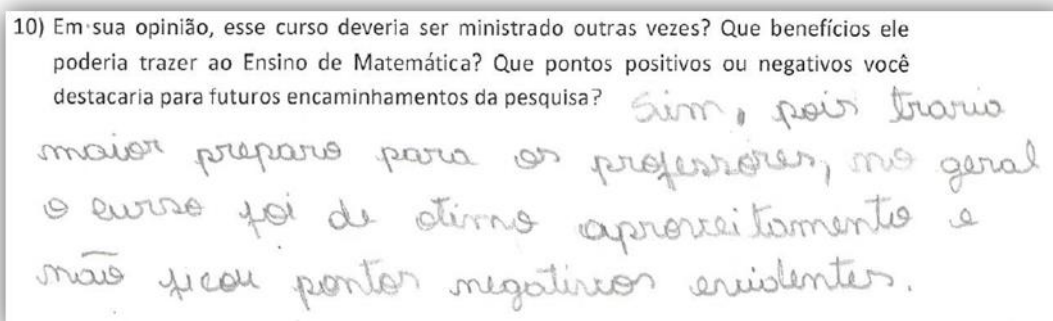 10) Em sua opinião, esse curso deveria ser ministrado outras vezes? Que benefícios ele
poderia trazer ao Ensino de Matemática? Que pontos positivos ou negativos você
destacaria para futuros encaminhamentos da pesquisa? Sim, pois traria
maior preparo para os professores, no geral
o curso foi de otimo aproveitamento e
não ficou pontos negativos evidentes.